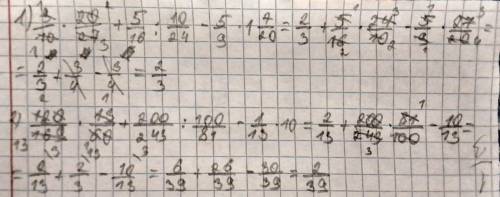 1) 9/10 · 20/27 + 5/16 : 10/24 - 5/9 · 1 7/20 = 2/3 + 5/16 · 24/10 - 5/9 · 27/20 =
= 2/3 + 3/4 - 3/4 = 2/3
2) 120/169 · 13/60 + 200/243 : 100/81 - 1/13 · 10 = 2/13 + 200/243 · 81/100 - 10/13 =
= 2/13 + 2/3 - 10/13 = 6/39 + 26/39 - 30/39 = 2/39